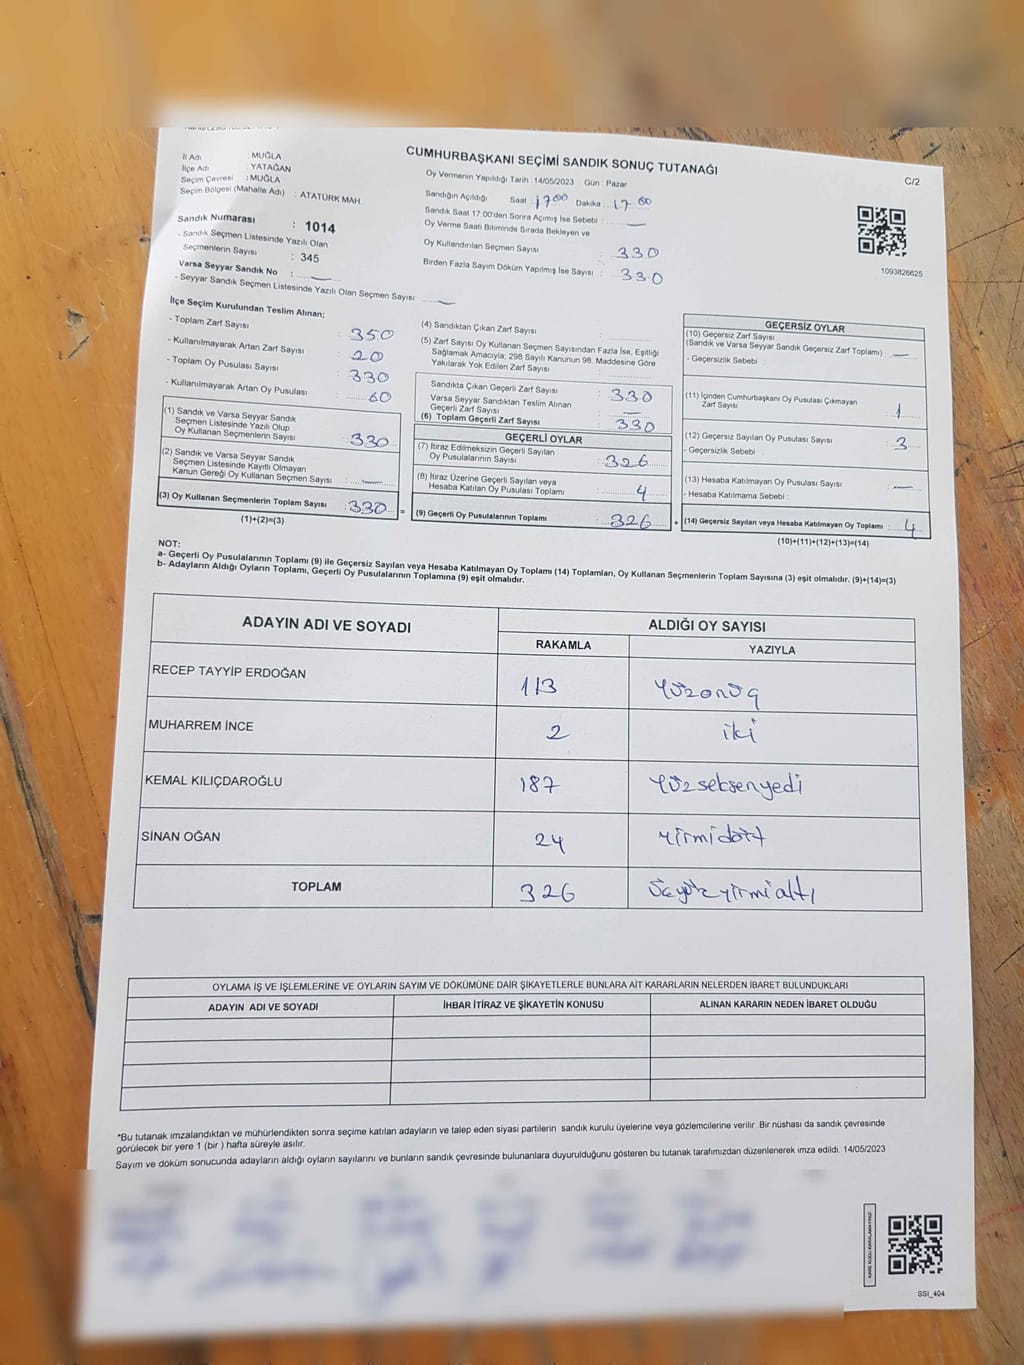 CUMHURBAŞKANI SEÇİMİ SANDIK SONUÇ TUTANAĞI
C/2
İl Adı : MUĞLA
İlçe Adı : YATAĞAN
Seçim Çevresi : MUĞLA
Seçim Bölgesi (Mahalle Adı) : ATATÜRK MAH.
Sandık Numarası : 1014
- Sandık Seçmen Listesinde Yazılı Olan
Seçmenlerin Sayısı : 345
Varsa Seyyar Sandık No : —
- Seyyar Sandık Seçmen Listesinde Yazılı Olan Seçmen Sayısı: —
Oy Vermenin Yapıldığı Tarih : 14/05/2023 Gün : Pazar
Sandığın Açıldığı Saat : 17 00 Dakika : 17 00
Sandık Saat 17.00'den Sonra Açımış İse Sebebi : —
Oy Verme Saati Bitiminde Sırada Bekleyen ve
Oy Kullandırılan Seçmen Sayısı : 330
Birden Fazla Sayım Döküm Yapılmış İse Sayısı : 330
1093826625
İlçe Seçim Kurulundan Teslim Alınan;
- Toplam Zarf Sayısı : 350
- Kullanılmayarak Artan Zarf Sayısı : 20
- Toplam Oy Pusulası Sayısı : 330
- Kullanılmayarak Artan Oy Pusulası : 60
(1) Sandık ve Varsa Seyyar Sandık
Seçmen Listesinde Yazılı Olup
Oy Kullanan Seçmenlerin Sayısı : 330
(2) Sandık ve Varsa Seyyar Sandık
Seçmen Listesinde Kayıtlı Olmayan
Kanun Gereği Oy Kullanan Seçmen Sayısı : —
(3) Oy Kullanan Seçmenlerin Toplam Sayısı : 330 =
(1)+(2)=(3)
(4) Sandıktan Çıkan Zarf Sayısı :
(5) Zarf Sayısı Oy Kullanan Seçmen Sayısından Fazla İse, Eşitliği
Sağlamak Amacıyla; 298 Sayılı Kanunun 98. Maddesine Göre
Yakılarak Yok Edilen Zarf Sayısı :
Sandıkta Çıkan Geçerli Zarf Sayısı : 330
Varsa Seyyar Sandıktan Teslim Alınan
Geçerli Zarf Sayısı : —
(6) Toplam Geçerli Zarf Sayısı : 330
GEÇERLİ OYLAR
(7) İtiraz Edilmeksizin Geçerli Sayılan
Oy Pusulalarının Sayısı : 326
(8) İtiraz Üzerine Geçerli Sayılan veya
Hesaba Katılan Oy Pusulası Toplamı : 4
(9) Geçerli Oy Pusulalarının Toplamı : 326 +
GEÇERSİZ OYLAR
(10) Geçersiz Zarf Sayısı
(Sandık ve Varsa Seyyar Sandık Geçersiz Zarf Toplamı) : —
- Geçersizlik Sebebi :
(11) İçinden Cumhurbaşkanı Oy Pusulası Çıkmayan
Zarf Sayısı : 1
(12) Geçersiz Sayılan Oy Pusulası Sayısı : 3
- Geçersizlik Sebebi :
(13) Hesaba Katılmayan Oy Pusulası Sayısı : —
- Hesaba Katılmama Sebebi :
(14) Geçersiz Sayılan veya Hesaba Katılmayan Oy Toplamı : 4
(10)+(11)+(12)+(13)=(14)
NOT:
a- Geçerli Oy Pusulalarının Toplamı (9) ile Geçersiz Sayılan veya Hesaba Katılmayan Oy Toplamı (14) Toplamları, Oy Kullanan Seçmenlerin Toplam Sayısına (3) eşit olmalıdır. (9)+(14)=(3)
b- Adayların Aldığı Oyların Toplamı, Geçerli Oy Pusulalarının Toplamına (9) eşit olmalıdır.
ADAYIN ADI VE SOYADI ALDIĞI OY SAYISI
RAKAMLA YAZIYLA
RECEP TAYYİP ERDOĞAN 113 Yüzonüç
MUHARREM İNCE 2 iki
KEMAL KILIÇDAROĞLU 187 Yüzseksenyedi
SİNAN OĞAN 24 Yirmidört
TOPLAM 326 Üçyüzyirmialtı
OYLAMA İŞ VE İŞLEMLERİNE VE OYLARIN SAYIM VE DÖKÜMÜNE DAİR ŞİKAYETLERLE BUNLARA AİT KARARLARIN NELERDEN İBARET BULUNDUKLARI
ADAYIN ADI VE SOYADI İHBAR İTİRAZ VE ŞİKAYETİN KONUSU ALINAN KARARIN NEDEN İBARET OLDUĞU
*Bu tutanak imzalandıktan ve mühürlendikten sonra seçime katılan adayların ve talep eden siyasi partilerin sandık kurulu üyelerine veya gözlemcilerine verilir .Bir nüshası da sandık çevresinde
görülecek bir yere 1 (bir ) hafta süreyle asılır.
Sayım ve döküm sonucunda adayların aldığı oyların sayılarını ve bunların sandık çevresinde bulunanlara duyurulduğunu gösteren bu tutanak tarafımızdan düzenlenerek imza edildi. 14/05/2023
KARE KODU KARALAMAYINIZ!
SSI_404